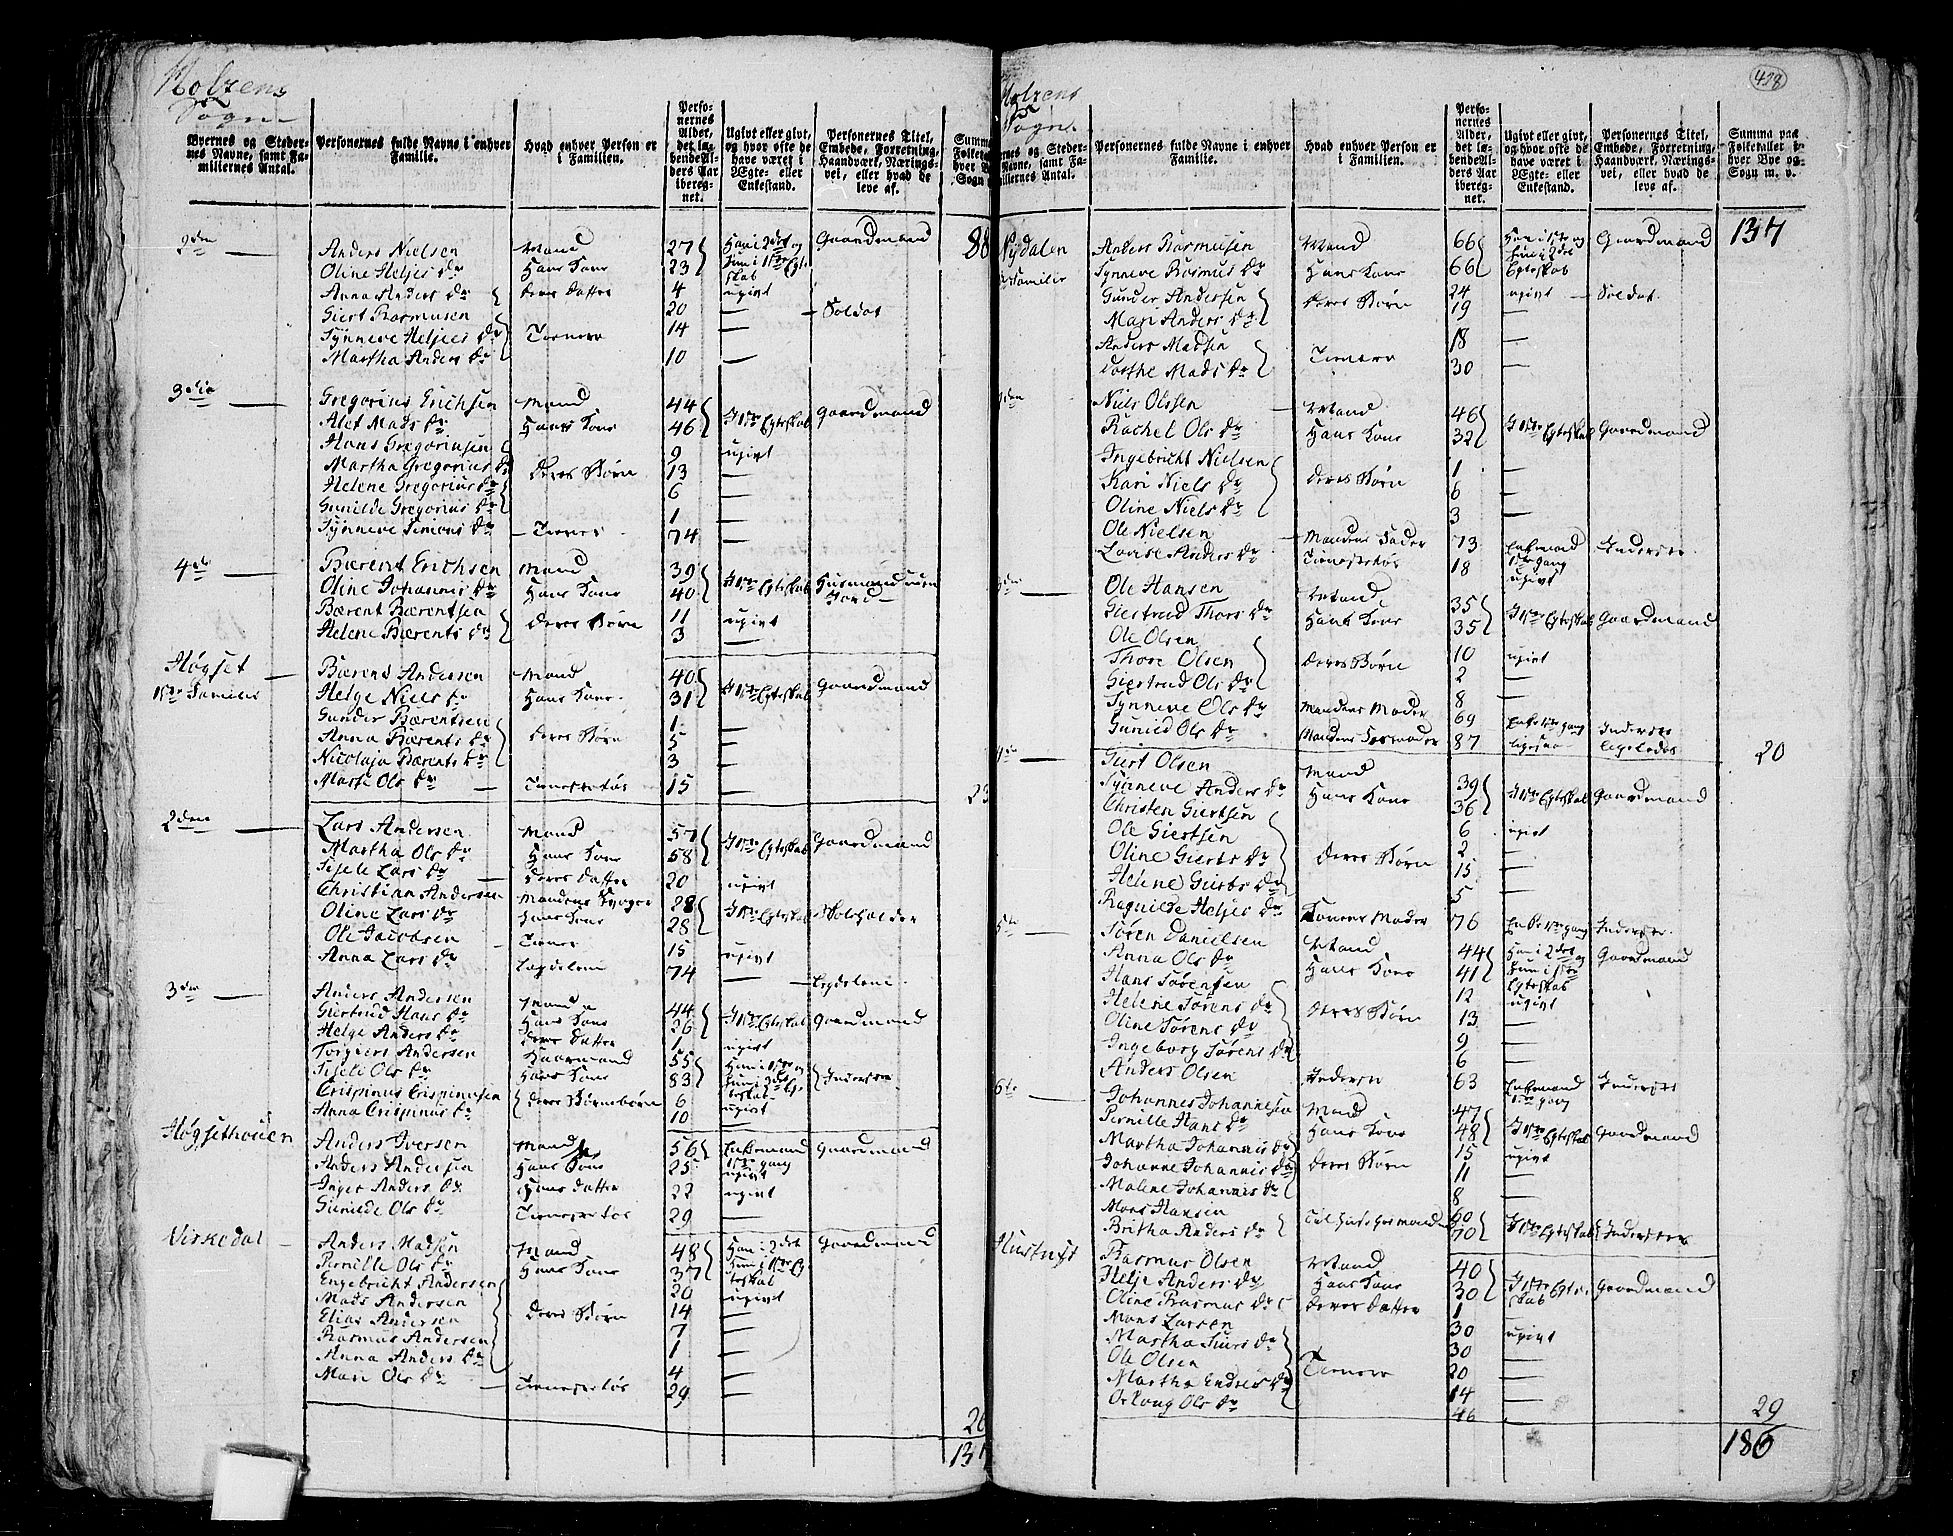 Molzens
Sogn
Byernes og Stedernes Navne, samt Familiernes Antal.
Personernes fulde Navne i enhver Familie.
Hvad enhver Person er i Familien.
Personernes Alder, det løbende Alders Aar iberegnet.
Ugivt eller givt, og hvor ofte de have været i Ægte- eller Enkestand.
Personernes Titel, Embede, Forretning, Haandværk, Næringsvei, eller hvad de leve af.
88
2den Anders Nielsen Mand 27 Han i 2det og Gaardmand
Oline Heljes Dr Hans Kone 23 hun i 1ste Egteskab
Anna Anders Dr deres Datter 4 ugivt
Giert Rasmusen 20 — Soldat
Synneve Heljes Dr Tienere 14 —
Martha Anders Dr 10 —
3die Gregorius Erichsen Mand 44 I 1ste Egteskab Gaardmand
Alet Mads Dr Hans Kone 46
Hans Gregoriusen 9 ugivt
Martha Gregorius Dr deres Børn 13 —
Helene Gregorius Dr 6 —
Gunilde Gregorius Dr 1 —
Synneve Simons Dr Tiener 74 —
4de Bærent Erichsen Mand 39 I 1ste Egteskab Huusmand uden Jord
Oline Johannis Dr Hans Kone 40
Bærent Bærentsen deres Børn 11 ugivt
Helene Bærents Dr 3 —
Høgset Bærend Andersen Mand 40 I 1ste Egteskab Gaardmand
1ste Familie Helge Niels Dr Hans Kone 31
Gunder Bærentsen 1 —
Anna Bærents Dr deres Børn 5 —
Nicolaja Bærents Dr 3 —
Marte Ols Dr Tienestetøs 15 —
23
2den Lars Andersen Mand 57 I 1ste Egteskab Gaardmand
Martha Ols Dr Hans Kone 58
Sisele Lars Dr deres Datter 20 ugivt
Christian Andersen Mandens Svoger 28 I 1ste Egteskab Skoleholder
Oline Lars Dr Hans Kone 28
Ole Jacobsen Tiener 15 ugivt
Anna Lars Dr Legdelem 74 — Legdelem
3die Anders Andersen Mand 44 I 1ste Egteskab Gaardmand
Giertrud Hans Dr Hans Kone 26
Helge Anders Dr deres Datter 1 ugivt
Torgiers Andersen Kaarmand 55 Han i 1ste og Inderster
Sisele Ols Dr Hans Kone 83 hun i 2det Egteskab
Crispinus Crispinusen deres Børnebørn 6 ugivt
Anna Crispinus Dr 10 —
Høgsethouen Anders Iversen Mand 56 Enkemand 1ste gang Gaardmand
Anders Andersen Hans Søn 25 ugivt
Inger Anders Dr Hans Datter 22 ugivt
Gunilde Ols Dr Tienestetøs 29 —
Virkedal Anders Madsen Mand 48 Han i 2det Gaardmand
Pernille Ols Dr Hans Kone 37 hun i 1ste Egteskab
Engebricht Andersen 20 ugivt
Mads Andersen 14 —
Elias Andersen deres Børn 7 —
Rasmus Andersen 1 —
Anna Anders Dr 4 —
Mari Ols Dr Tienestetøs 29 —
26
137
Molzens
Sogn
428
Personernes fulde Navne i enhver Familie.
Hvad enhver Person er i Familien.
Personernes Alder, det løbende Alders Aar iberegnet.
Ugivt eller givt, og hvor ofte de have været i Ægte- eller Enkestand.
Personernes Titel, Embede, Forretning, Haandværk, Næringsvei, eller hvad de leve af.
Summa paa Folketallet i hver Bye og Sogn m. v.
137
Nydalen Anders Rasmusen Mand 66 Han i 1ste og Gaardmand
Familie Synneve Rasmus Dr Hans Kone 66 hun i 2det Egteskab
Gunder Andersen deres Børn 24 ugivt — Soldat
Mari Anders Dr 19 —
Anders Madsen Tienere 18 —
Dorthe Mads Dr 30 —
Niels Olssen Mand 46 I 1ste Egteskab Gaardmand
Rachel Ols Dr Hans Kone 32
Ingebricht Nielsen 1 —
Kari Niels Dr deres Børn 6 —
Oline Niels Dr 3 —
Ole Nielsen Mandens Fader 73 Enkemand 1ste gang Inderster
Lovise Anders Dr Tienestetøs 18 ugivt
Ole Hansen Mand 35 I 1ste Egteskab Gaardmand
Giertrud Thors Dr Hans Kone 35
Ole Olsen 10 ugivt
Thore Olsen deres Børn 2 —
Giertrud Ols Dr 8 —
Synneve Ols Dr Mandens Moder 69 Enke 1ste gang Inderster
Gunild Ols Dr Mandens Formoder 87 ligesaa ligeledes
20
Giert Olsen Mand 39 I 1ste Egteskab Gaardmand
Synneve Anders Dr Hans Kone 36
Christen Giertsen 6 ugivt
Ole Giertsen deres Børn 2 —
Oline Gierts Dr 15 —
Helene Gierts Dr 5 —
Ragnilde Heljes Dr Konens Moder 76 Enke 1ste gang Inderster
5te Søren Danielsen Mand 44 Han i 2det og Gaardmand
Anna Ols Dr Hans Kone 41 hun i 1ste Egteskab
Hans Sørensen 12 ugivt
Helene Sørens Dr deres Børn 13 —
Oline Sørens Dr 9 —
Ingeborg Sørens Dr 6 —
Anders Olsen Inderst 63 Enkemand 1ste gang Inderster
6te Johannes Johannesen Mand 47 I 1ste Egteskab Gaardmand
Pernille Hans Dr Hans Kone 48
Martha Johannis Dr 15 ugivt
Johanne Johannis Dr deres Børn 11 —
Malene Johannis Dr 8 —
Mons Hansen 60 I 1ste Egteskab Inderster
Britha Anders Dr 70
Hustngt Rasmus Olsen Mand 40 I 1ste Egteskab Gaardmand
Helje Anders Dr Hans Kone 30
Oline Rasmus Dr deres Datter 1
Mons Larsen 30 ugivt
Martha Siurs Dr 30 —
Ole Olsen Tienere 20 —
Martha Endres Dr 14 —
Ols Dr 46 —
29
186